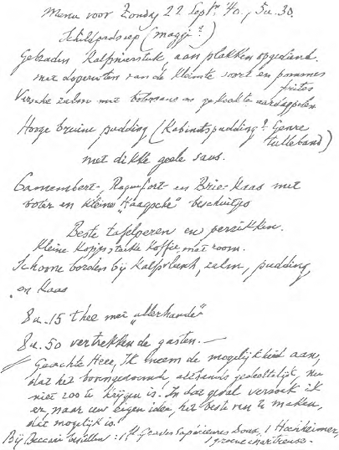 Menu voor Zondag 22 Sept. '40, 5 u. 30
Schildpadsoep (maggi?)
Gebraden Kalfsnierstuk, aan plakken opgediend
met doperwten van de kleinste soort en pommes
frites
Versche zalm met botersaus en gekookte aardappelen
Hooge bruine pudding (Kabinetspudding? Genre
tulband)
met dikke geele saus.
Camembert-, Roquefort en Brie-Kaas met
boter en kleine "Haagsche" beschuitjes
Beste tafelperen en perziken.
Kleine kopjes sterke koffie, met room.
Schoone borden bij Kalfsvleesch, zalm, pudding
en Kaas
8 u. 15 thee met "allerhande"
8 u. 50 vertrekken de gasten.
Geachte Heer, Ik neem de mogelijkheid aan,
dat het bovengenoemde, althans gedeeltelijk, nu
niet zoo te krijgen is. In dat geval verzoek ik
er, naar uw eigen idee, het beste van te maken,
dat mogelijk is.
Bij bestellen: 1 fl. Graves Supérieures Doux, 1 Hochheimer,
1 groene chartreuse.